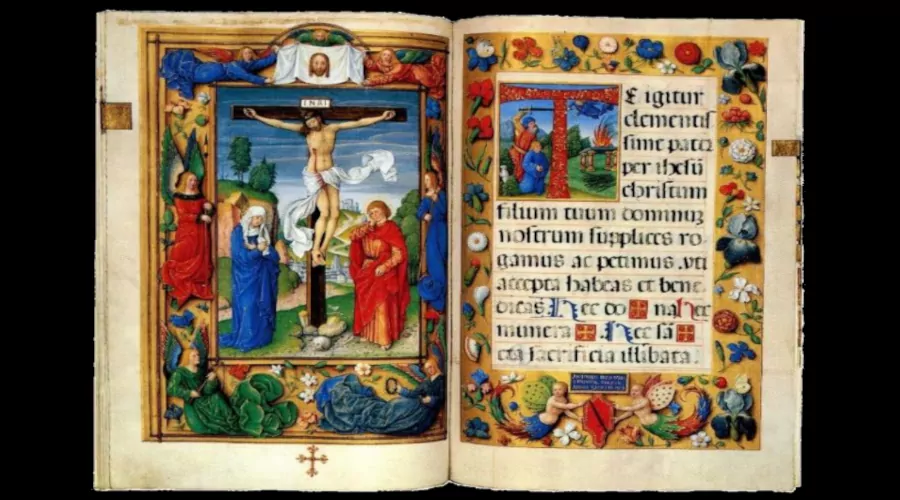 INRI
TE igitur
clementis
sime pater
per ihesū
christum
filium tuum dominuz
nostrum supplices ro
gamus ac petimus .vti
accepta habeas et bene
dicas Hec do ✠ na Hec
munera ✠ . Hec sā ✠
cta sacrificia illibata .